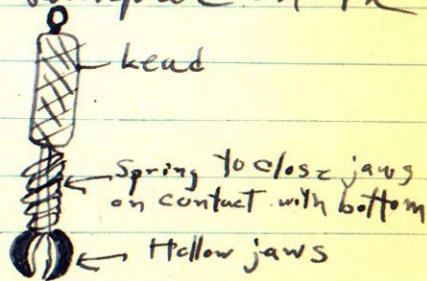 Lead
Spring to close jaws
on contact with bottom
Hollow jaws